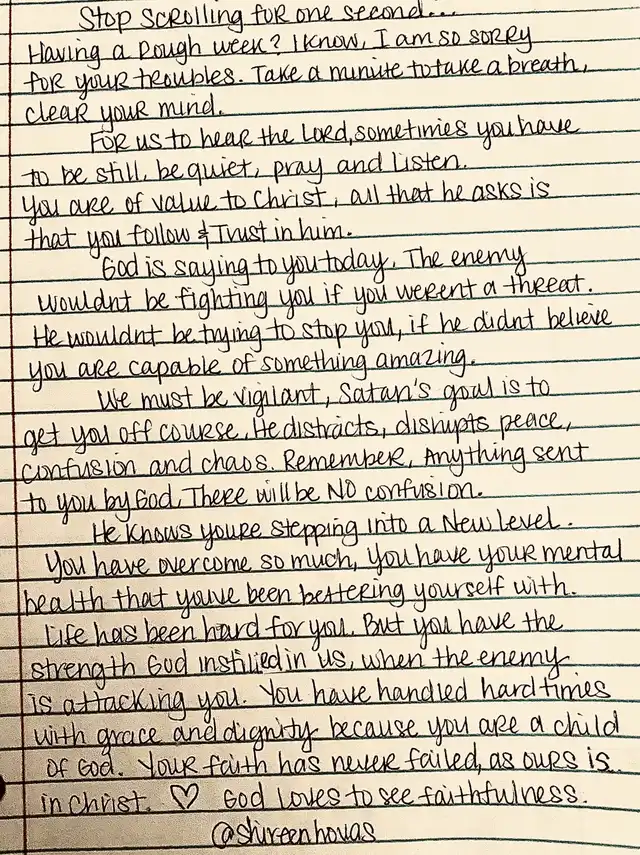 Stop scrolling for one second...
Having a rough week? I know, I am so sorry
for your troubles. Take a minute to take a breath,
clear your mind.
For us to hear the Lord, sometimes you have
to be still, be quiet, pray and listen.
You are of value to Christ, all that he asks is
that you follow & Trust in him.
God is saying to you today, The enemy
wouldnt be fighting you if you werent a threat.
He wouldnt be trying to stop you, if he didnt believe
you are capable of something amazing.
We must be vigilant, Satan's goal is to
get you off course. He distracts, disrupts peace,
confusion and chaos. Remember, Anything sent
to you by God, There will be NO confusion.
He knows youre stepping into a New level.
You have overcome so much, You have your mental
health that youve been bettering yourself with.
Life has been hard for you. But you have the
strength God instilled in us, when the enemy
is attacking you. You have handled hard times
with grace and dignity because you are a child
of God. Your faith has never failed, as ours is
in Christ. ♡ God loves to see faithfulness.
@shireenhovas